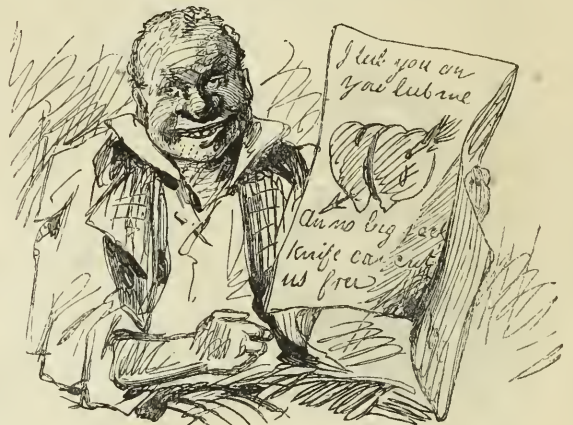 I lub you an
you lub me
An no big jack
knife can cut
us free